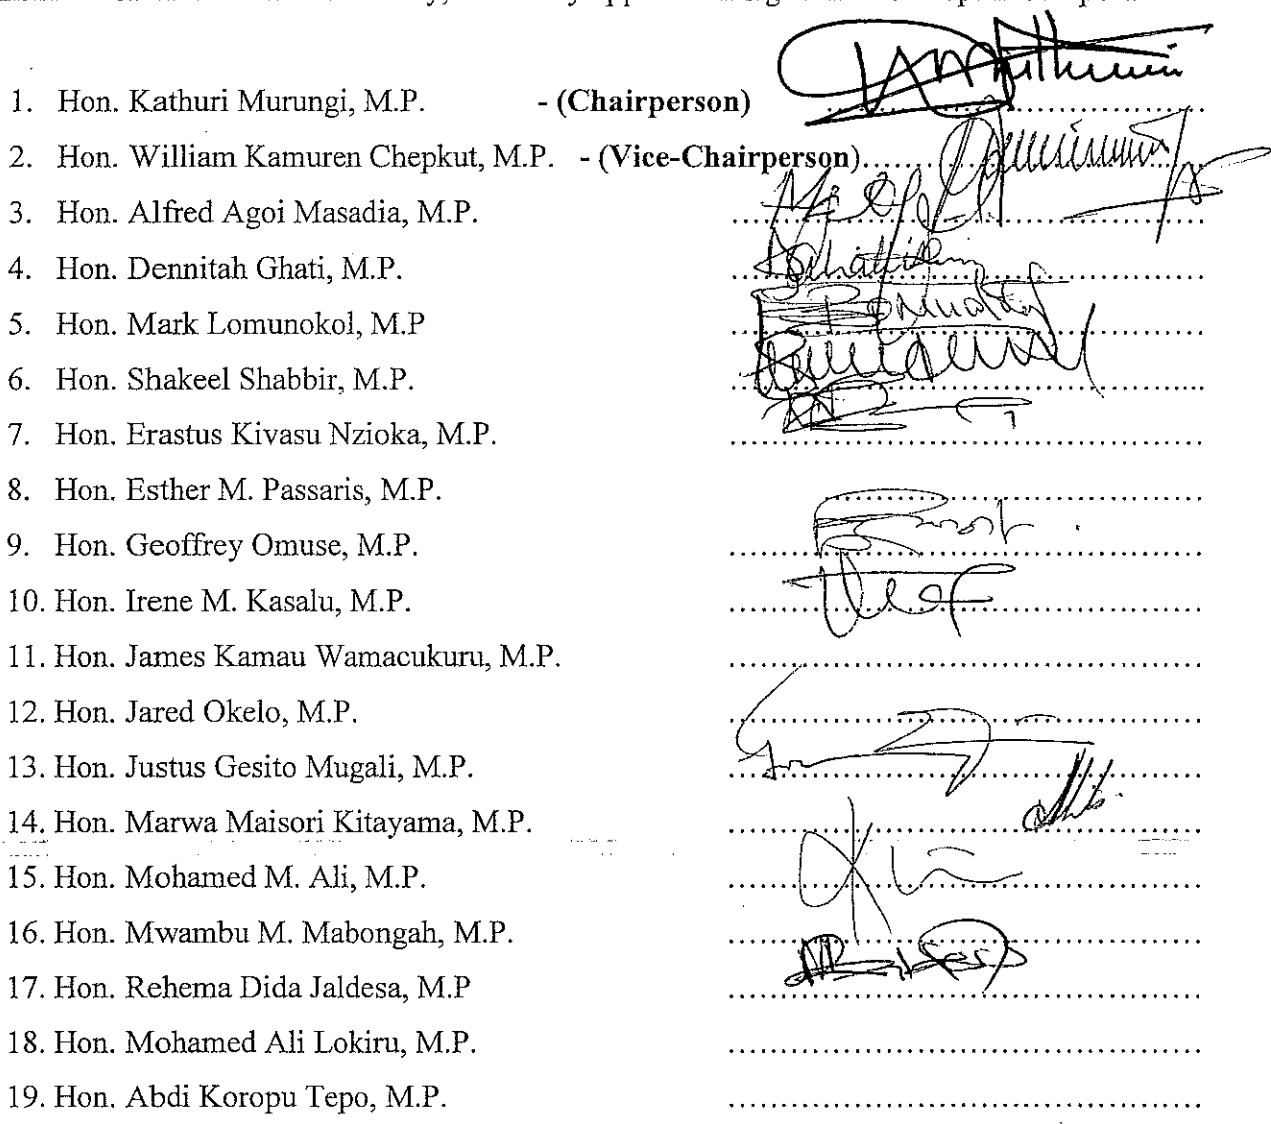 1. Hon. Kathuri Murungi, M.P. - (Chairperson) ........................................
2. Hon. William Kamuren Chepkut, M.P. - (Vice-Chairperson)........................................
3. Hon. Alfred Agoi Masadia, M.P. ........................................
4. Hon. Dennitah Ghati, M.P. ........................................
5. Hon. Mark Lomunokol, M.P ........................................
6. Hon. Shakeel Shabbir, M.P. ........................................
7. Hon. Erastus Kivasu Nzioka, M.P. ........................................
8. Hon. Esther M. Passaris, M.P. ........................................
9. Hon. Geoffrey Omuse, M.P. ........................................
10. Hon. Irene M. Kasalu, M.P. ........................................
11. Hon. James Kamau Wamacukuru, M.P. ........................................
12. Hon. Jared Okelo, M.P. ........................................
13. Hon. Justus Gesito Mugali, M.P. ........................................
14. Hon. Marwa Maisori Kitayama, M.P. ........................................
15. Hon. Mohamed M. Ali, M.P. ........................................
16. Hon. Mwambu M. Mabongah, M.P. ........................................
17. Hon. Rehema Dida Jaldesa, M.P ........................................
18. Hon. Mohamed Ali Lokiru, M.P. ........................................
19. Hon. Abdi Koropu Tepo, M.P. ........................................